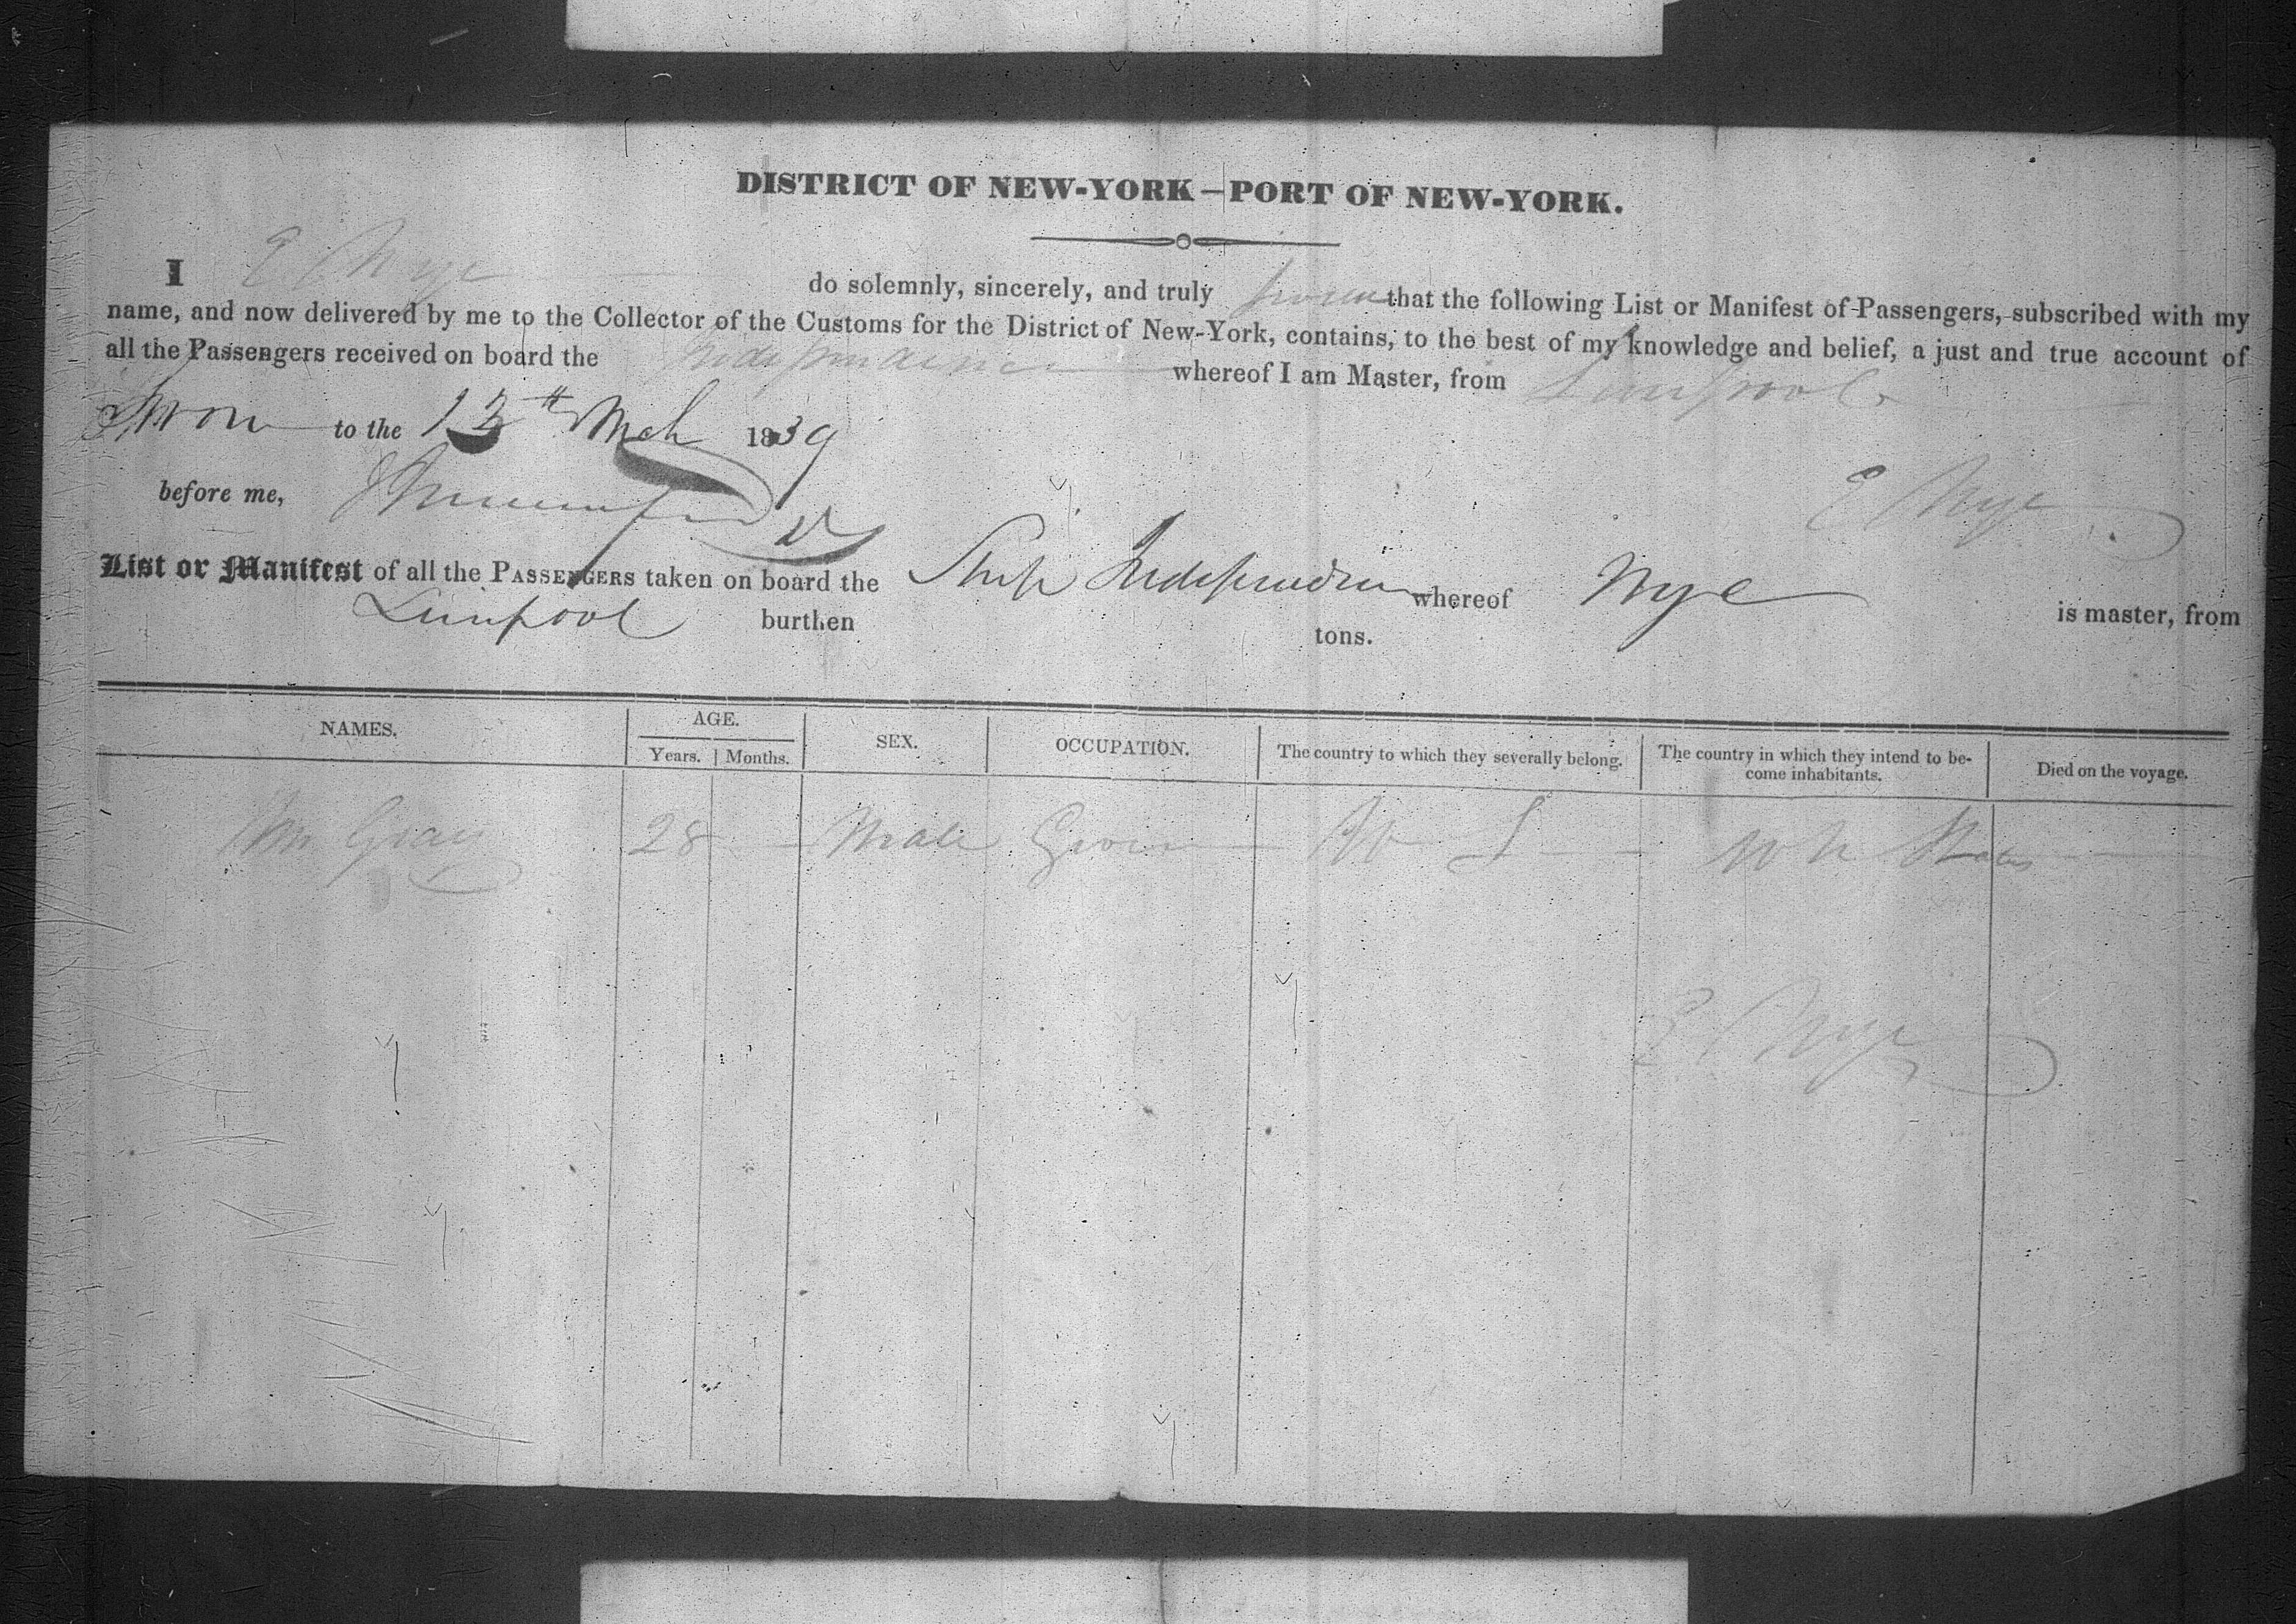 DISTRICT OF NEW-YORK—PORT OF NEW-YORK.
I E Nye do solemnly, sincerely, and truly swear that the following List or Manifest of Passengers, subscribed with my
name, and now delivered by me to the Collector of the Customs for the District of New-York, contains, to the best of my knowledge and belief, a just and true account of
all the Passengers received on board the Independence whereof I am Master, from Liverpool.
Sworn to the 13th Mch 1839
before me,
E Nye
List or Manifest of all the PASSENGERS taken on board the Ship Independence whereof Nye is master, from
Liverpool burthen tons.
NAMES. AGE. SEX. OCCUPATION. The country to which they severally belong. The country in which they intend to be-come inhabitants. Died on the voyage.
Years. Months.
Wm Gray 28 Male States
E Nye